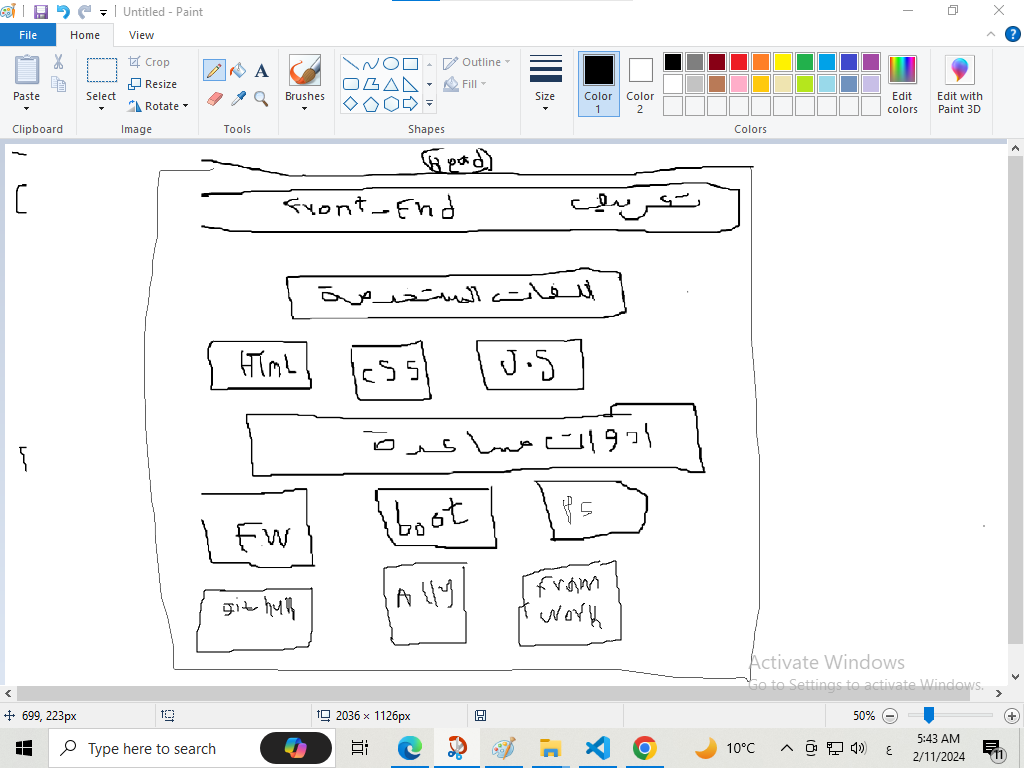 Untitled - Paint
File
Home
View
Paste
Clipboard
Select
Crop
Resize
Rotate
Image
Tools
Brushes
Shapes
Outline
Fill
Size
Color 1
Color 2
Colors
Edit colors
Edit with Paint 3D
Front-End تعريف
اللغات المستخدمة
HTmL
css
J.S
ادوات مساعدة
FW
boot
PS
A11y
Fram
work
Activate Windows
Go to Settings to activate Windows.
699, 223px
2036 × 1126px
50%
Type here to search
10°C
ع
5:43 AM
2/11/2024
11